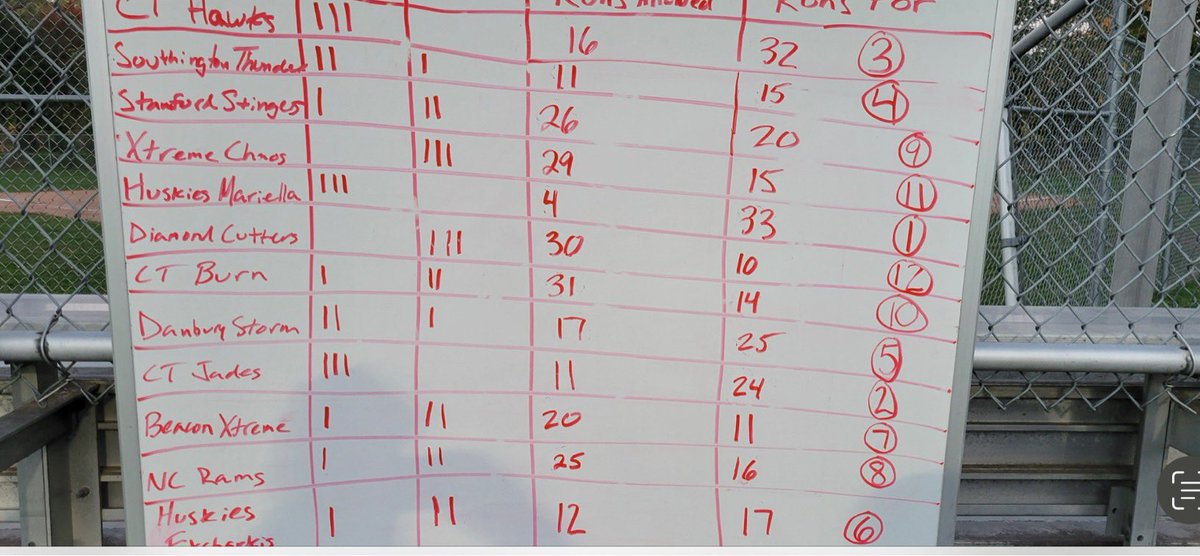 Runs Allowed Runs For
CT Hawks III 16 32 3
Southington Thunder II I 11 15 4
Stamford Stinges I II 26 20 9
Xtreme Chaos III 29 15 11
Huskies Mariella III 4 33 1
Diamond Cutters III 30 10 12
CT Burn I II 31 14 10
Danbury Storm II I 17 25 5
CT Jades III 11 24 2
Beacon Xtreme I II 20 11 7
NC Rams I II 25 16 8
Huskies I II 12 17 6